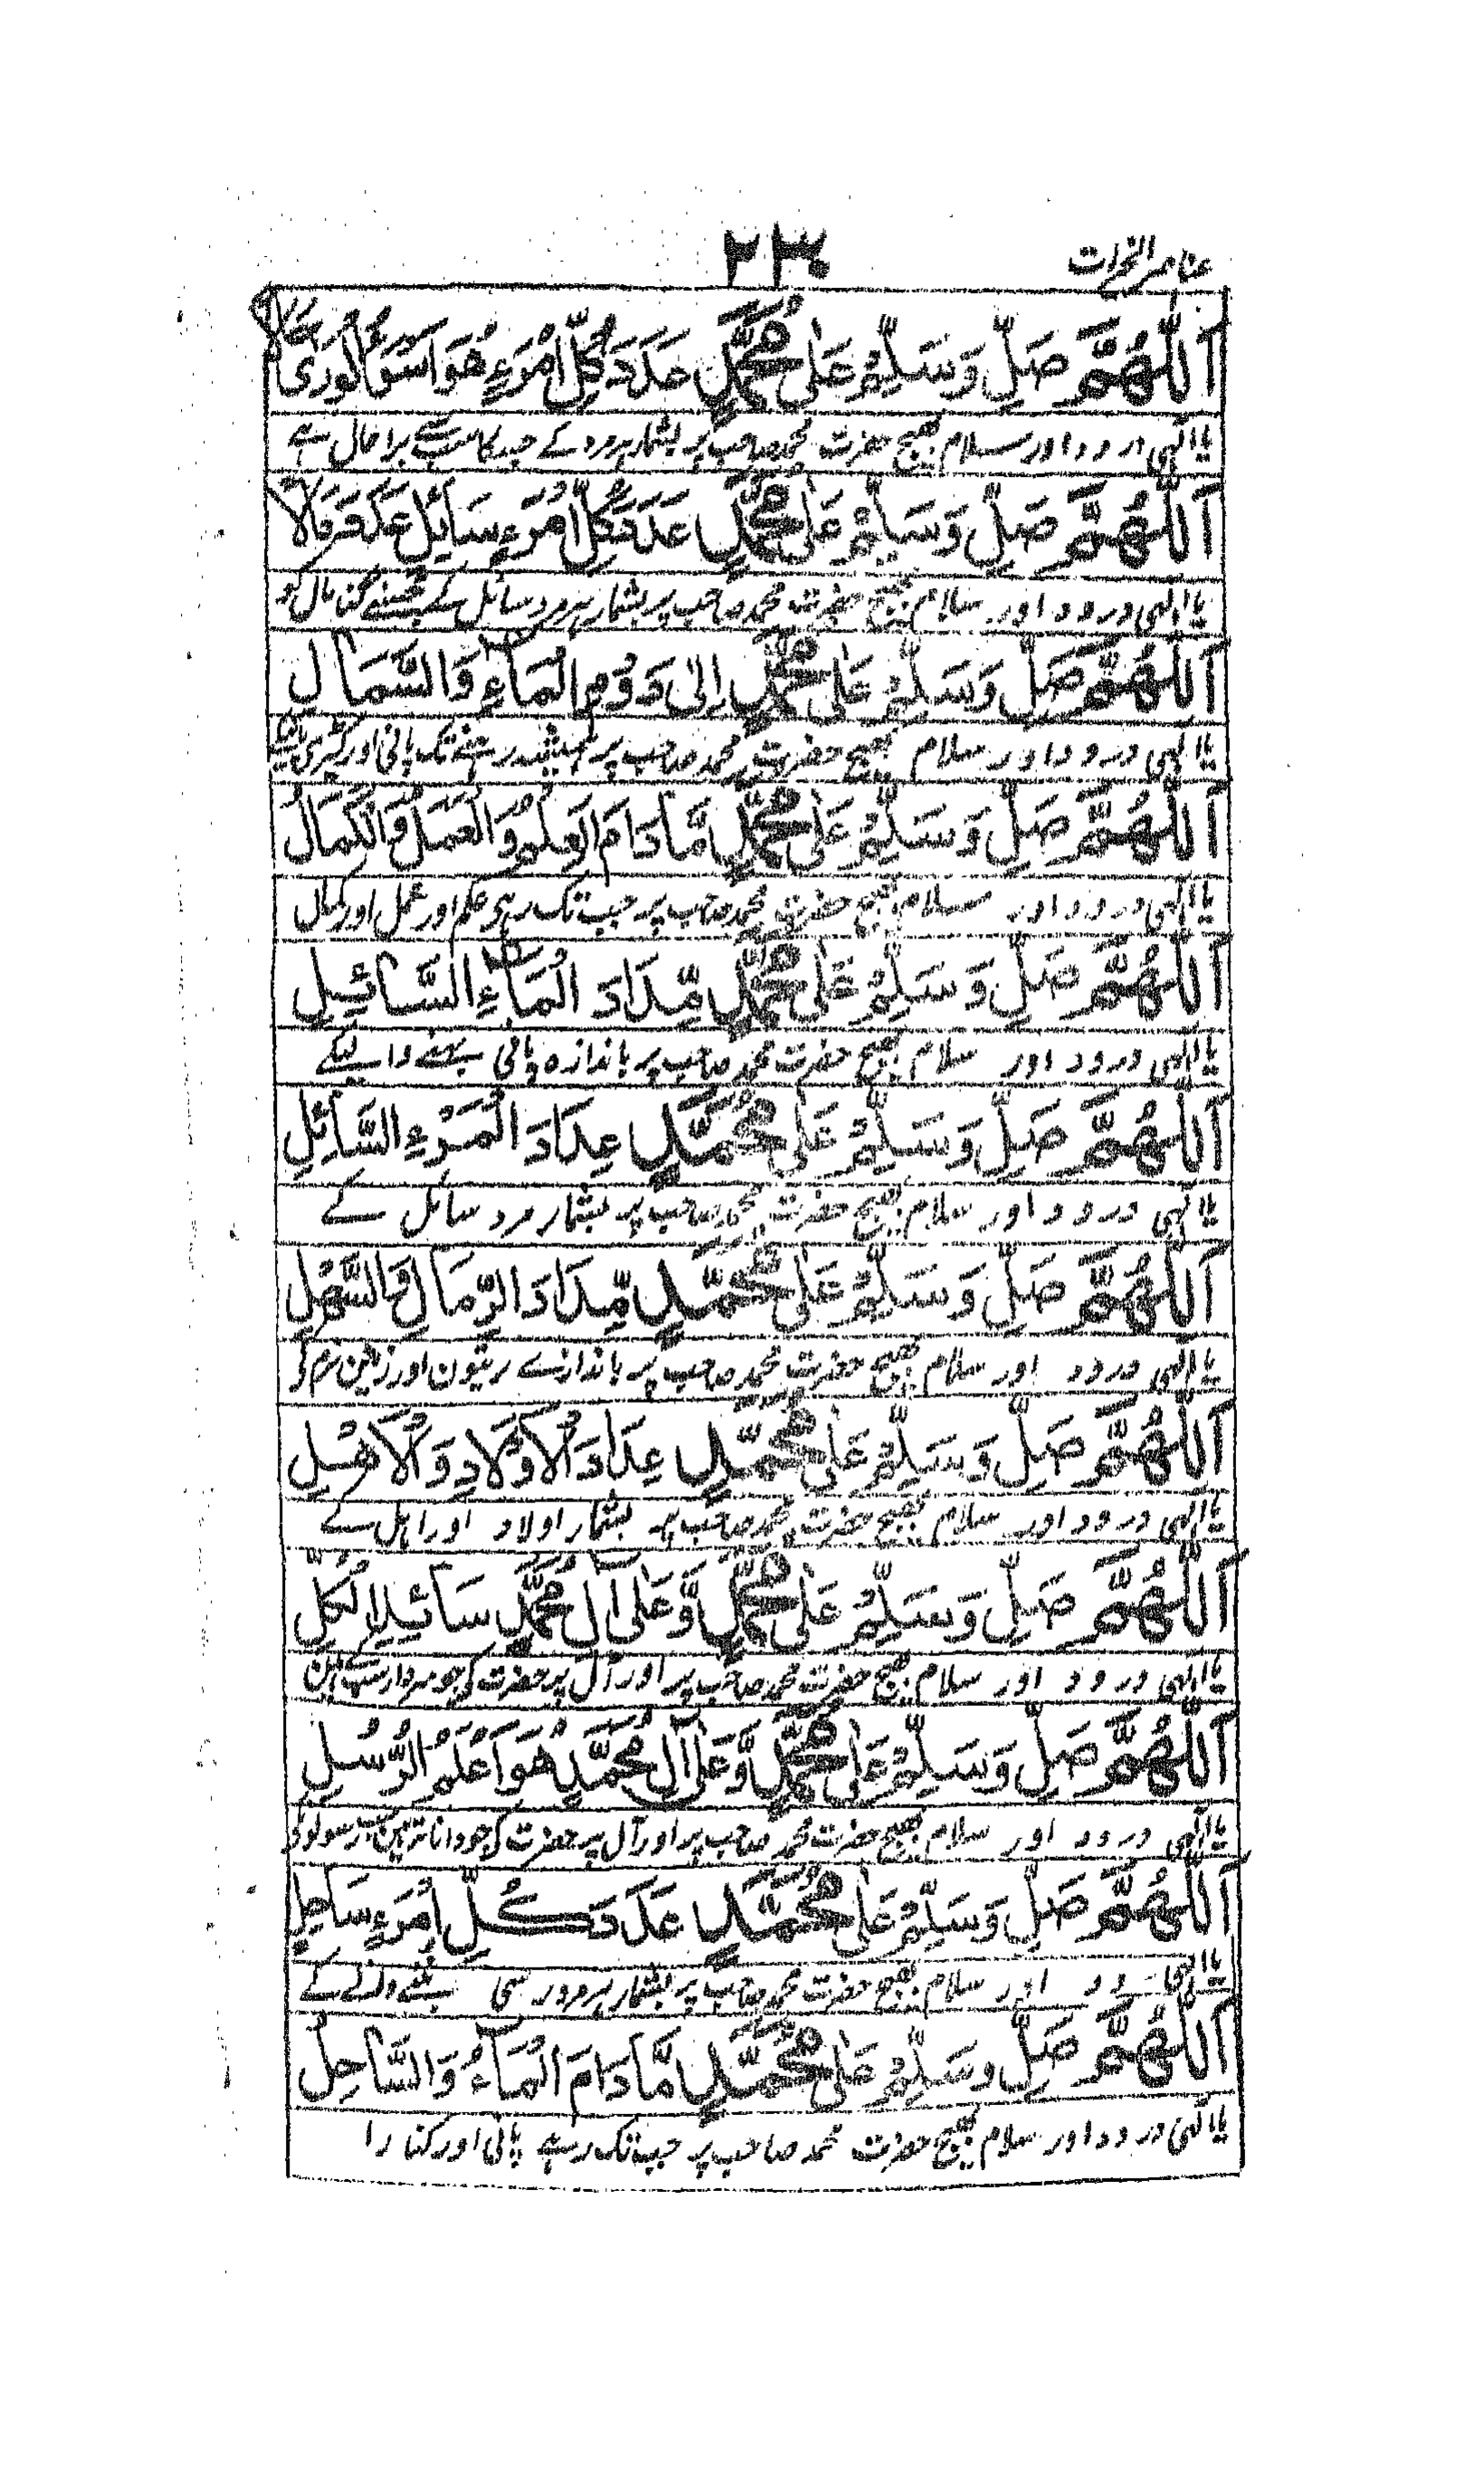 عناصر الخیرات
۲۳۰
اَللّٰهُمَّ صَلِّ وَسَلِّمْ عَلٰى مُحَمَّدٍ عَدَدَ كُلِّ امْرَءٍ هُوَ اَسْوَءُ الْوَرٰى حَالًا
یا الٰہی درود اور سلام بھیج حضرت محمد صاحب پر بشمار ہر مرد کے جسکا سب سے برا حال ہے
اَللّٰهُمَّ صَلِّ وَسَلِّمْ عَلٰى مُحَمَّدٍ عَدَدَ كُلِّ امْرَءٍ سَائِلٍ عَدَّ مَالًا
یا الٰہی درود اور سلام بھیج حضرت محمد صاحب پر بشمار ہر مرد سائل کے جسنے گن مال کو
اَللّٰهُمَّ صَلِّ وَسَلِّمْ عَلٰى مُحَمَّدٍ اِلٰى دَوْمِ الْمَاءِ وَالشَّمَالِ
یا الٰہی درود اور سلام بھیج حضرت محمد صاحب پر ہمیشہ رہنے تک پانی اور
اَللّٰهُمَّ صَلِّ وَسَلِّمْ عَلٰى مُحَمَّدٍ مَّا دَامَ الْعِلْمُ وَالْعَمَلُ وَالْكَمَالُ
یا الٰہی درود اور سلام بھیج حضرت محمد صاحب پر جب تک رہی علم اور عمل اور کمال
اَللّٰهُمَّ صَلِّ وَسَلِّمْ عَلٰى مُحَمَّدٍ مِّدَادَ الْمَاءِ السَّائِلِ
یا الٰہی درود اور سلام بھیج حضرت محمد صاحب پر باندازہ پانی بہنے والیکے
اَللّٰهُمَّ صَلِّ وَسَلِّمْ عَلٰى مُحَمَّدٍ عِدَادَ الْمَرْءِ السَّائِلِ
یا الٰہی درود اور سلام بھیج حضرت محمد صاحب پر بشمار مرد سائل کے
اَللّٰهُمَّ صَلِّ وَسَلِّمْ عَلٰى مُحَمَّدٍ مِّدَادَ الرِّمَالِ وَالسَّهْلِ
یا الٰہی درود اور سلام بھیج حضرت محمد صاحب پر باندازے ریتون اور زمین نرم کی
اَللّٰهُمَّ صَلِّ وَسَلِّمْ عَلٰى مُحَمَّدٍ عِدَادَ الْاَوْلَادِ وَالْاَهْلِ
یا الٰہی درود اور سلام بھیج حضرت محمد صاحب پر بشمار اولاد اور اہل کے
اَللّٰهُمَّ صَلِّ وَسَلِّمْ عَلٰى مُحَمَّدٍ وَّعَلٰى اٰلِ مُحَمَّدٍ الْكُلِّ
یا الٰہی درود اور سلام بھیج حضرت محمد صاحب پر اور آل پر حضرت کی جو سردار سب کے ہین
اَللّٰهُمَّ صَلِّ وَسَلِّمْ عَلٰى مُحَمَّدٍ وَّعَلٰى اٰلِ مُحَمَّدٍ هُوَ اَعْلَمُ الرُّسُلِ
یا الٰہی درود اور سلام بھیج حضرت محمد صاحب پر اور آل پر حضرت کی جو دانا تر ہین سب رسولو کی
اَللّٰهُمَّ صَلِّ وَسَلِّمْ عَلٰى مُحَمَّدٍ عَدَدَ كُلِّ امْرَءٍ سَاحِلٍ
یا الٰہی اور سلام بھیج حضرت محمد صاحب پر بشمار ہر مرد رسی بٹنے والے کے
اَللّٰهُمَّ صَلِّ وَسَلِّمْ عَلٰى مُحَمَّدٍ مَّا دَامَ الْمَاءُ وَالسَّاحِلُ
یا الٰہی درود اور سلام بھیج حضرت محمد صاحب پر جب تک رہے پانی اور کنارا